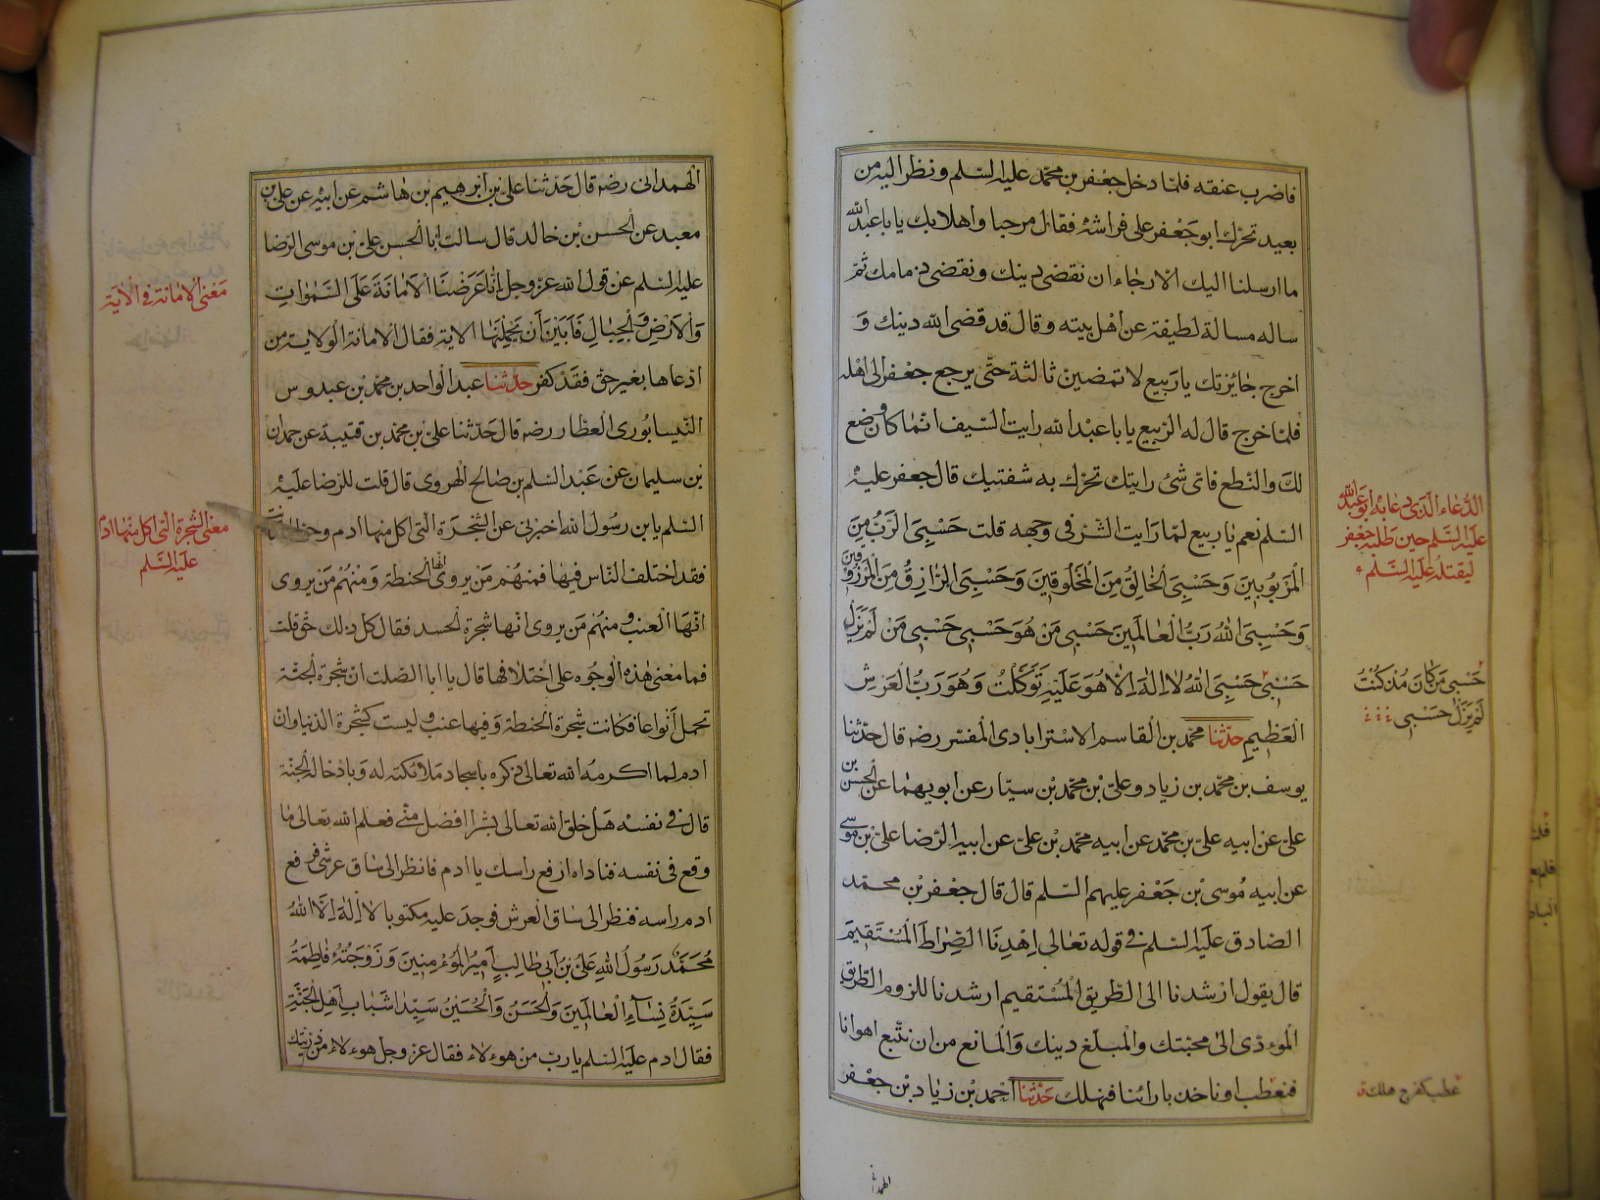 فاضرب عنقه فلمّا دخل جعفر بن محمّد عليه السّلم ونظر اليه من
بعيد تحرّك ابو جعفر على فراشه فقال مرحبا واهلا بك يا با عبد الله
ما ارسلنا اليك الا رجاء ان نقضى دينك ونقضى ذمامك ثمّ
ساله مسالة لطيفة عن اهل بيته وقال قد قضى الله دينك و
اخرج جائزتك يا ربيع لا تمضين ثالثة حتّى يرجع جعفر الى اهله
فلمّا خرج قال له الرّبيع يا با عبد الله رايت السّيف انّما كان وضع
لك والنّطع فاىّ شئ رايتك تحرّك به شفتيك قال جعفر عليه
السّلم نعم يا ربيع لمّا رايت الشّر فى وجهه قلت حَسْبِىَ الرَّبُّ مِنَ
الْمَرْبُوبِينَ وَحَسْبِىَ الْخَالِقُ مِنَ الْمَخْلُوقِينَ وَحَسْبِىَ الرَّازِقُ مِنَ الْمَرْزُوقِينَ
وَحَسْبِىَ اللهُ رَبُّ الْعَالَمِينَ حَسْبِى مَنْ هُوَ حَسْبِى حَسْبِى مَنْ لَمْ يَزَلْ
حَسْبِى حَسْبِىَ اللهُ لَا اِلٰهَ اِلَّا هُوَ عَلَيْهِ تَوَكَّلْتُ وَهُوَ رَبُّ الْعَرْشِ
الْعَظِيمِ حدّثنا محمّد بن القاسم الاسترابادى المفسّر رضه قال حدّثنا
يوسف بن محمّد بن زياد وعلىّ بن محمّد بن سيّار عن ابويهما عن الحسن بن
علىّ عن ابيه علىّ بن محمّد عن ابيه محمّد بن علىّ عن ابيه الرّضا علىّ بن موسى
عن ابيه موسى بن جعفر عليهم السّلم قال قال جعفر بن محمّد
الصّادق عليه السّلم فى قوله تعالى اِهْدِنَا الصِّرَاطَ الْمُسْتَقِيمَ
قال يقول ارشدنا الى الطّريق المستقيم ارشدنا للزوم الطّريق
المؤدّى الى محبّتك والمبلّغ دينك والمانع من ان نتّبع اهوائنا
فنعطب او ناخذ بارائنا فنهلك حدّثنا احمد بن زياد بن جعفر
الهمدانى
الدّعاء الّذى دعا به ابو عبد الله
عليه السّلم حين طلبه جعفر
ليقتله عليه السّلم
حَسْبِى مَنْ كَانَ مُذْ كُنْتُ
لَمْ يَزَلْ حَسْبِى
عطب كفرح هلك
الهمدانى رضه قال حدّثنا علىّ بن ابرهيم بن هاشم عن ابيه عن علىّ بن
معبد عن الحسن بن خالد قال سالت ابا الحسن علىّ بن موسى الرّضا
عليه السّلم عن قول الله عزّ وجلّ اِنَّا عَرَضْنَا الْاَمَانَةَ عَلَى السَّمٰوَاتِ
وَالْاَرْضِ وَالْجِبَالِ فَاَبَيْنَ اَنْ يَحْمِلْنَهَا الاية فقال الامانة الولاية من
ادّعاها بغير حقّ فقد كفر حدّثنا عبد الواحد بن محمّد بن عبدوس
النّيسابورى العطّار رضه قال حدّثنا علىّ بن محمّد بن قتيبة عن حمدان
بن سليمان عن عبد السّلم بن صالح الهروى قال قلت للرّضا عليه
السّلم يا بن رسول الله اخبرنى عن الشّجرة الّتى اكل منها ادم وحوّا ما كانت
فقد اختلف النّاس فيها فمنهم من يروى انّها الحنطة ومنهم من يروى
انّها العنب ومنهم من يروى انّها شجرة الحسد فقال كلّ ذلك حقّ قلت
فما معنى هذه الوجوه على اختلافها قال يا ابا الصّلت انّ شجرة الجنّة
تحمل انواعا فكانت شجرة الحنطة وفيها عنب وليست كشجرة الدّنيا وانّ
ادم لما اكرمه الله تعالى ذكره باسجاد ملائكته له وبادخاله الجنّة
قال فى نفسه هل خلق الله تعالى بشرا افضل منّى فعلم الله تعالى ما
وقع فى نفسه فناداه ارفع راسك يا ادم فانظر الى ساق عرشى فرفع
ادم راسه فنظر الى ساق العرش فوجد عليه مكتوبا لَا اِلٰهَ اِلَّا اللهُ
مُحَمَّدٌ رَسُولُ اللهِ عَلِىُّ بْنُ اَبِى طَالِبٍ اَمِيرُ الْمُؤْمِنِينَ وَزَوْجَتُهُ فَاطِمَةُ
سَيِّدَةُ نِسَاءِ الْعَالَمِينَ وَالْحَسَنُ وَالْحُسَيْنُ سَيِّدَا شَبَابِ اَهْلِ الْجَنَّةِ
فقال ادم عليه السّلم يا ربّ من هؤلاء فقال عزّ وجلّ هؤلاء من ذرّيّتك
معنى الامانة فى الاية
معنى الشّجرة الّتى اكل منها ادم
عليه السّلم